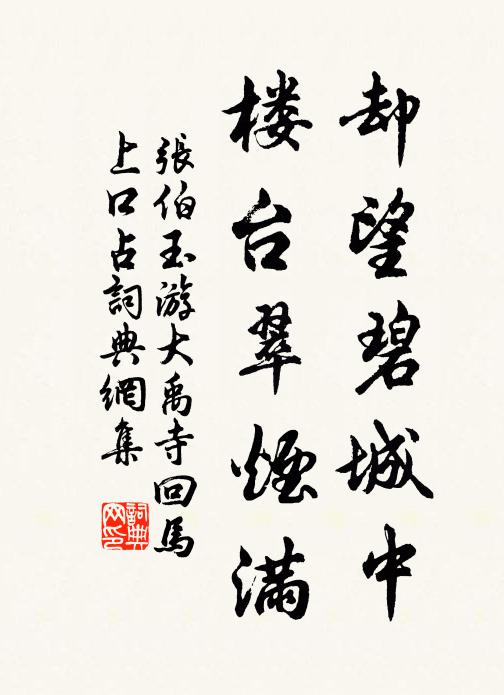 却望碧城中
楼台翠煙滿
張伯玉游大禹寺回馬
上口占詞典網集
詞典
网印